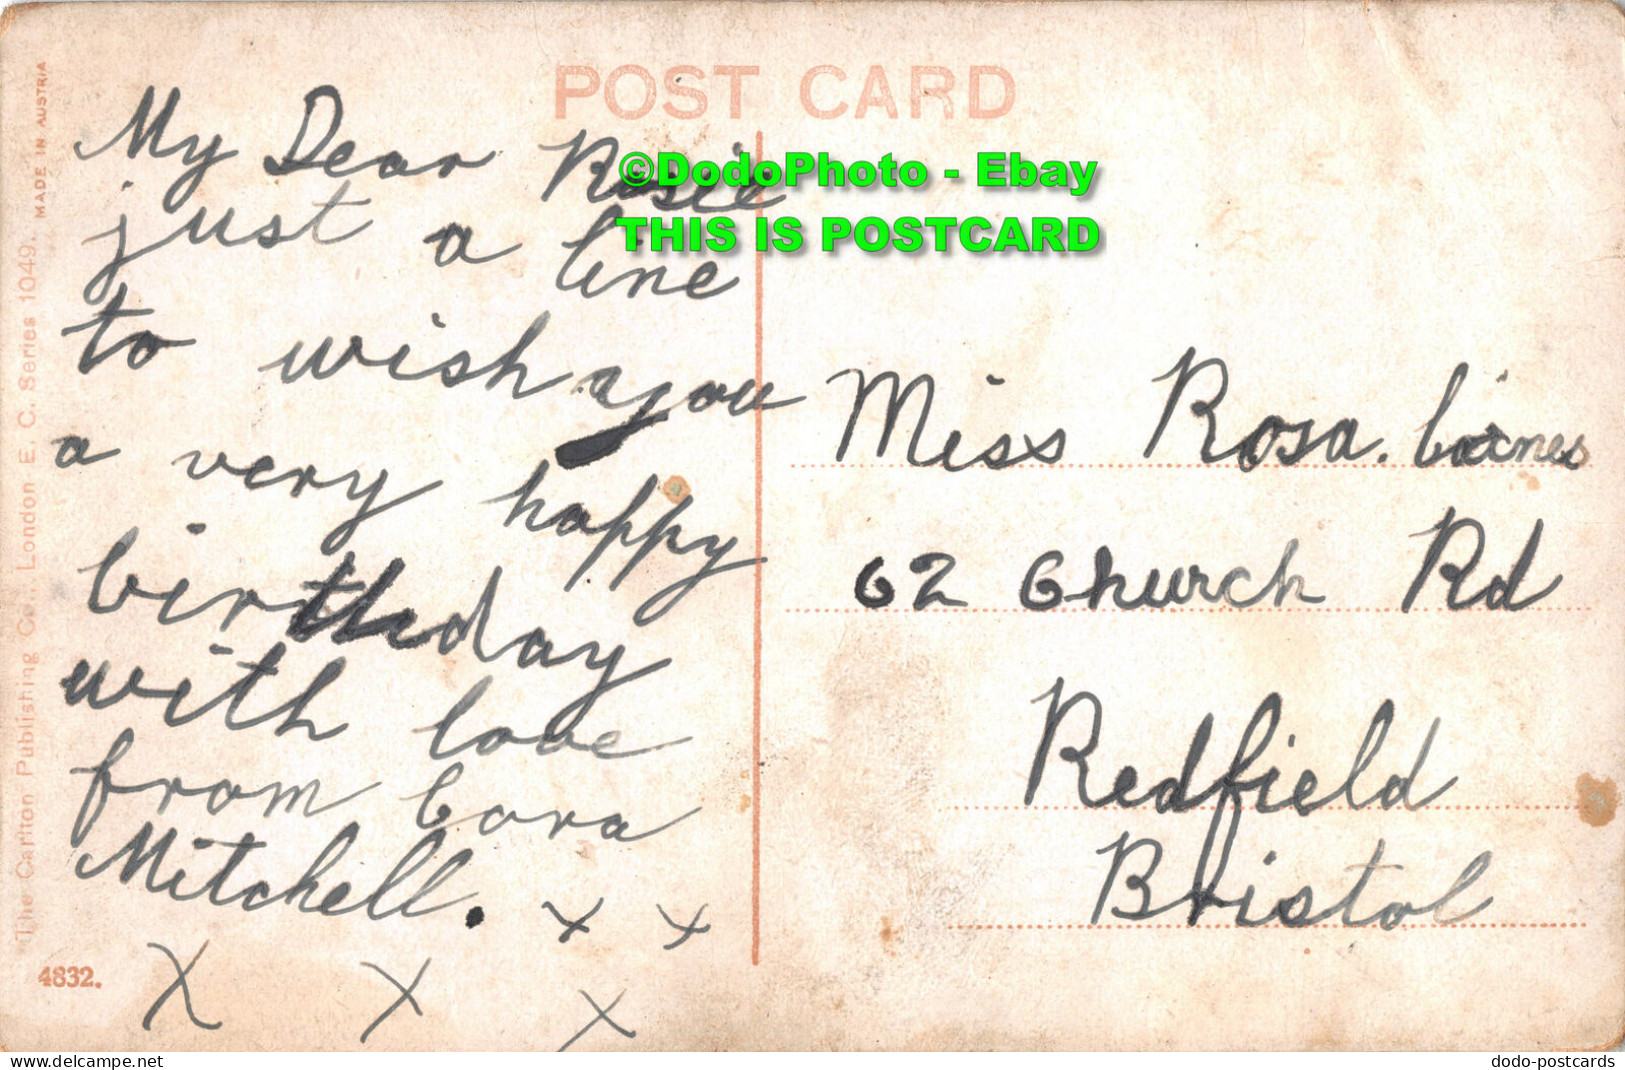 POST CARD
©DodoPhoto - Ebay
THIS IS POSTCARD
My Dear Rosie
just a line
to wish you
a very happy
birthday
with love
from Cora
Mitchell. x x
x x x
Miss Rosa.
62 Church Rd
Redfield
Bristol
The Carlton Publishing Co., London E. C. Series 1049. MADE IN AUSTRIA
4832.
www.delcampe.net
dodo-postcards